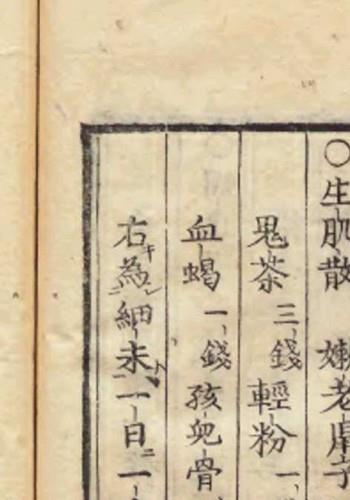 ○生肌散 嫩老
鬼茶三錢輕粉一
血竭一錢孩兒骨
右為細末一日一